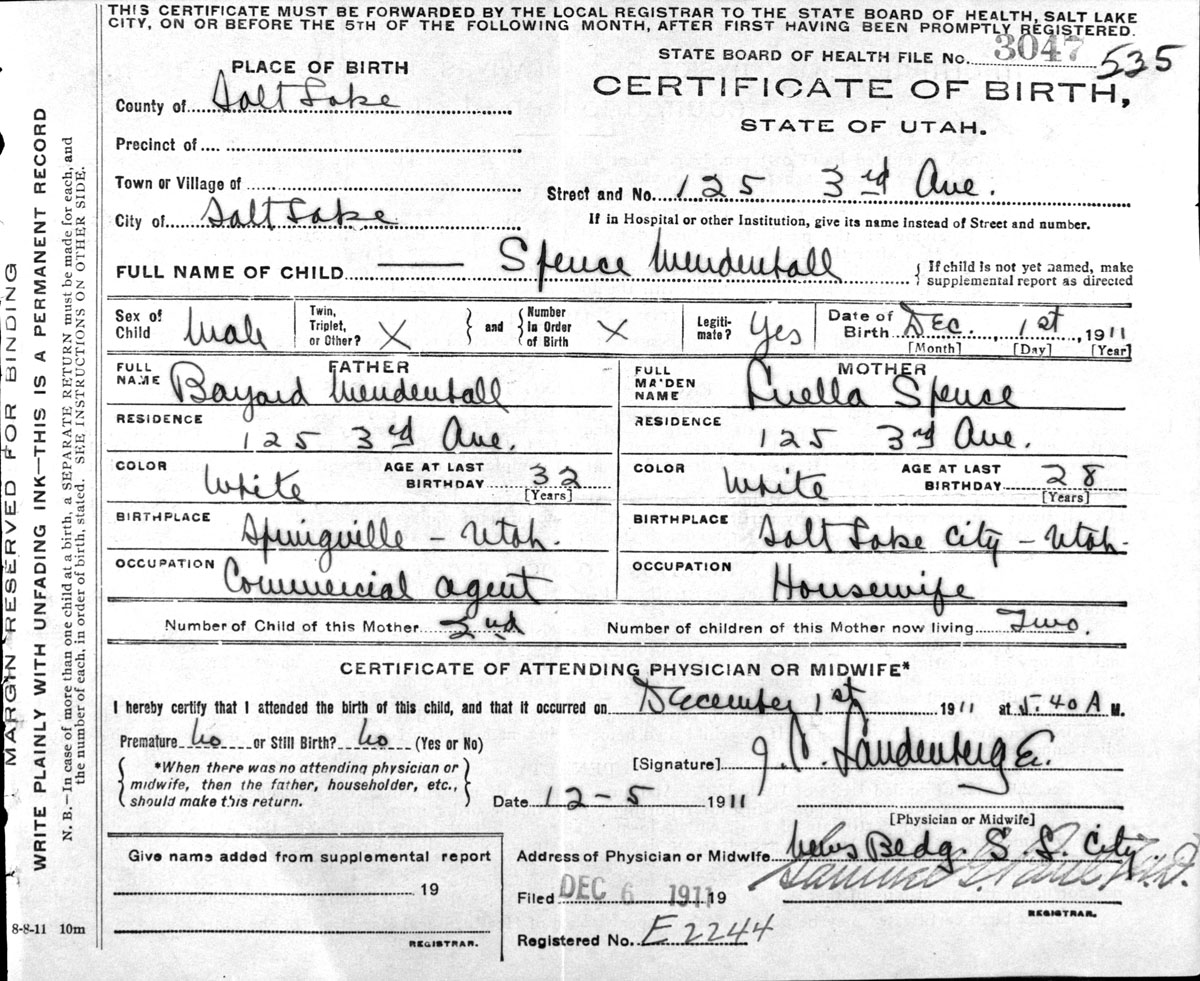 THIS CERTIFICATE MUST BE FORWARDED BY THE LOCAL REGISTRAR TO THE STATE BOARD OF HEALTH, SALT LAKE
CITY, ON OR BEFORE THE 5TH OF THE FOLLOWING MONTH, AFTER FIRST HAVING BEEN PROMPTLY REGISTERED.
STATE BOARD OF HEALTH FILE No. 3047 535
PLACE OF BIRTH
CERTIFICATE OF BIRTH,
County of Salt Lake
STATE OF UTAH.
Precinct of
Town or Village of
Street and No. 125 3rd Ave.
City of Salt Lake
If in Hospital or other Institution, give its name instead of Street and number.
FULL NAME OF CHILD Spence Mendenhall
{ If child is not yet named, make
supplemental report as directed
Sex of Child Male
Twin, Triplet, or Other? X
and
Number In Order of Birth X
Legiti-mate? Yes
Date of Birth Dec. 1st, 1911
[Month] [Day] [Year]
FATHER
FULL NAME Bayard Mendenhall
RESIDENCE 125 3rd Ave.
COLOR White AGE AT LAST BIRTHDAY 32
[Years]
BIRTHPLACE Springville - Utah.
OCCUPATION Commercial agent
MOTHER
FULL MAIDEN NAME Luella Spence
RESIDENCE 125 3rd Ave.
COLOR White AGE AT LAST BIRTHDAY 28
[Years]
BIRTHPLACE Salt Lake City - Utah.
OCCUPATION Housewife
Number of Child of this Mother 2nd Number of children of this Mother now living Two.
CERTIFICATE OF ATTENDING PHYSICIAN OR MIDWIFE*
I hereby certify that I attended the birth of this child, and that it occurred on December 1st 1911 at 5.40 A M.
Premature No or Still Birth? No (Yes or No)
[Signature]
*When there was no attending physician or
midwife, then the father, householder, etc.,
should make this return.
Date 12-5 1911
[Physician or Midwife]
Give name added from supplemental report
19
REGISTRAR.
Address of Physician or Midwife Bldg. S L. City
Filed DEC 6 1911 19
REGISTRAR.
Registered No. E 2244
8-8-11 10m
MARGIN RESERVED FOR BINDING
WRITE PLAINLY WITH UNFADING INK—THIS IS A PERMANENT RECORD
N. B.—In case of more than one child at a birth, a SEPARATE RETURN must be made for each, and
the number of each, in order of birth, stated. SEE INSTRUCTIONS ON OTHER SIDE.